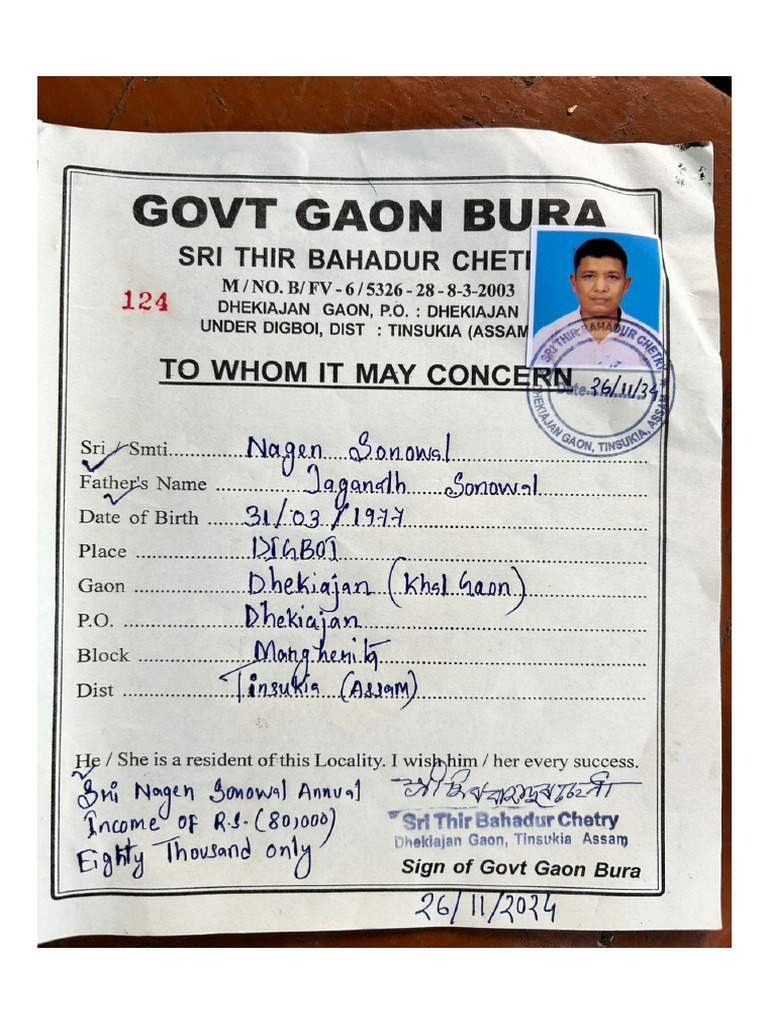 GOVT GAON BURA
SRI THIR BAHADUR CHET
M / NO. B/ FV - 6 / 5326 - 28 - 8-3-2003
124
DHEKIAJAN GAON, P.O. : DHEKIAJAN
UNDER DIGBOI, DIST : TINSUKIA (ASSAM
TO WHOM IT MAY CONCERN
SRI THIR BAHADUR CHETRY
Date 26/11/24
DHEKIAJAN GAON, TINSUKIA, ASSAM
Sri / Smti Nagen Sonowal
Father's Name Jaganath Sonowal
Date of Birth 31/03/1977
Place DIGBOI
Gaon Dhekiajan (Khal Gaon)
P.O. Dhekiajan
Block
Dist Tinsukia (Assam)
He / She is a resident of this Locality. I wish him / her every success.
Sri Nagen Sonowal Annual
Income of R.S. (80,000)
Eighty Thousand only
Sri Thir Bahadur Chetry
Dhekiajan Gaon, Tinsukia Assam
Sign of Govt Gaon Bura
26/11/2024